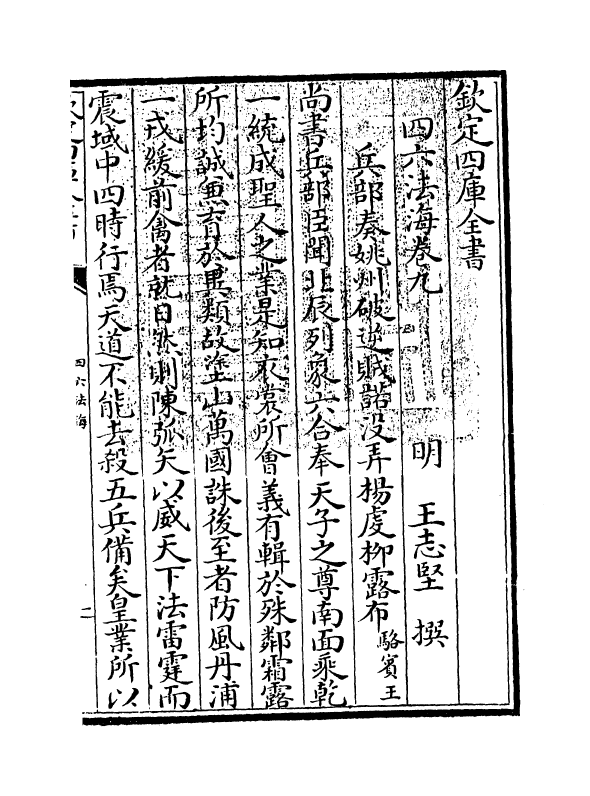 欽定四庫全書
四六法海卷九
明　王志堅　撰
兵部奏姚州破逆賊諾没弄楊虔柳露布
駱賓王
尚書兵部臣聞北辰列象六合奉天子之尊南面乘乾
一統成聖人之業是知衣裳所會義有輯於殊鄰霜露
所均誠無育於異類故塗山萬國誅後至者防風丹浦
一戎緩前禽者就日然則陳弧矢以威天下法雷霆而
震域中四時行焉天道不能去殺五兵備矣皇業所以
四六法海